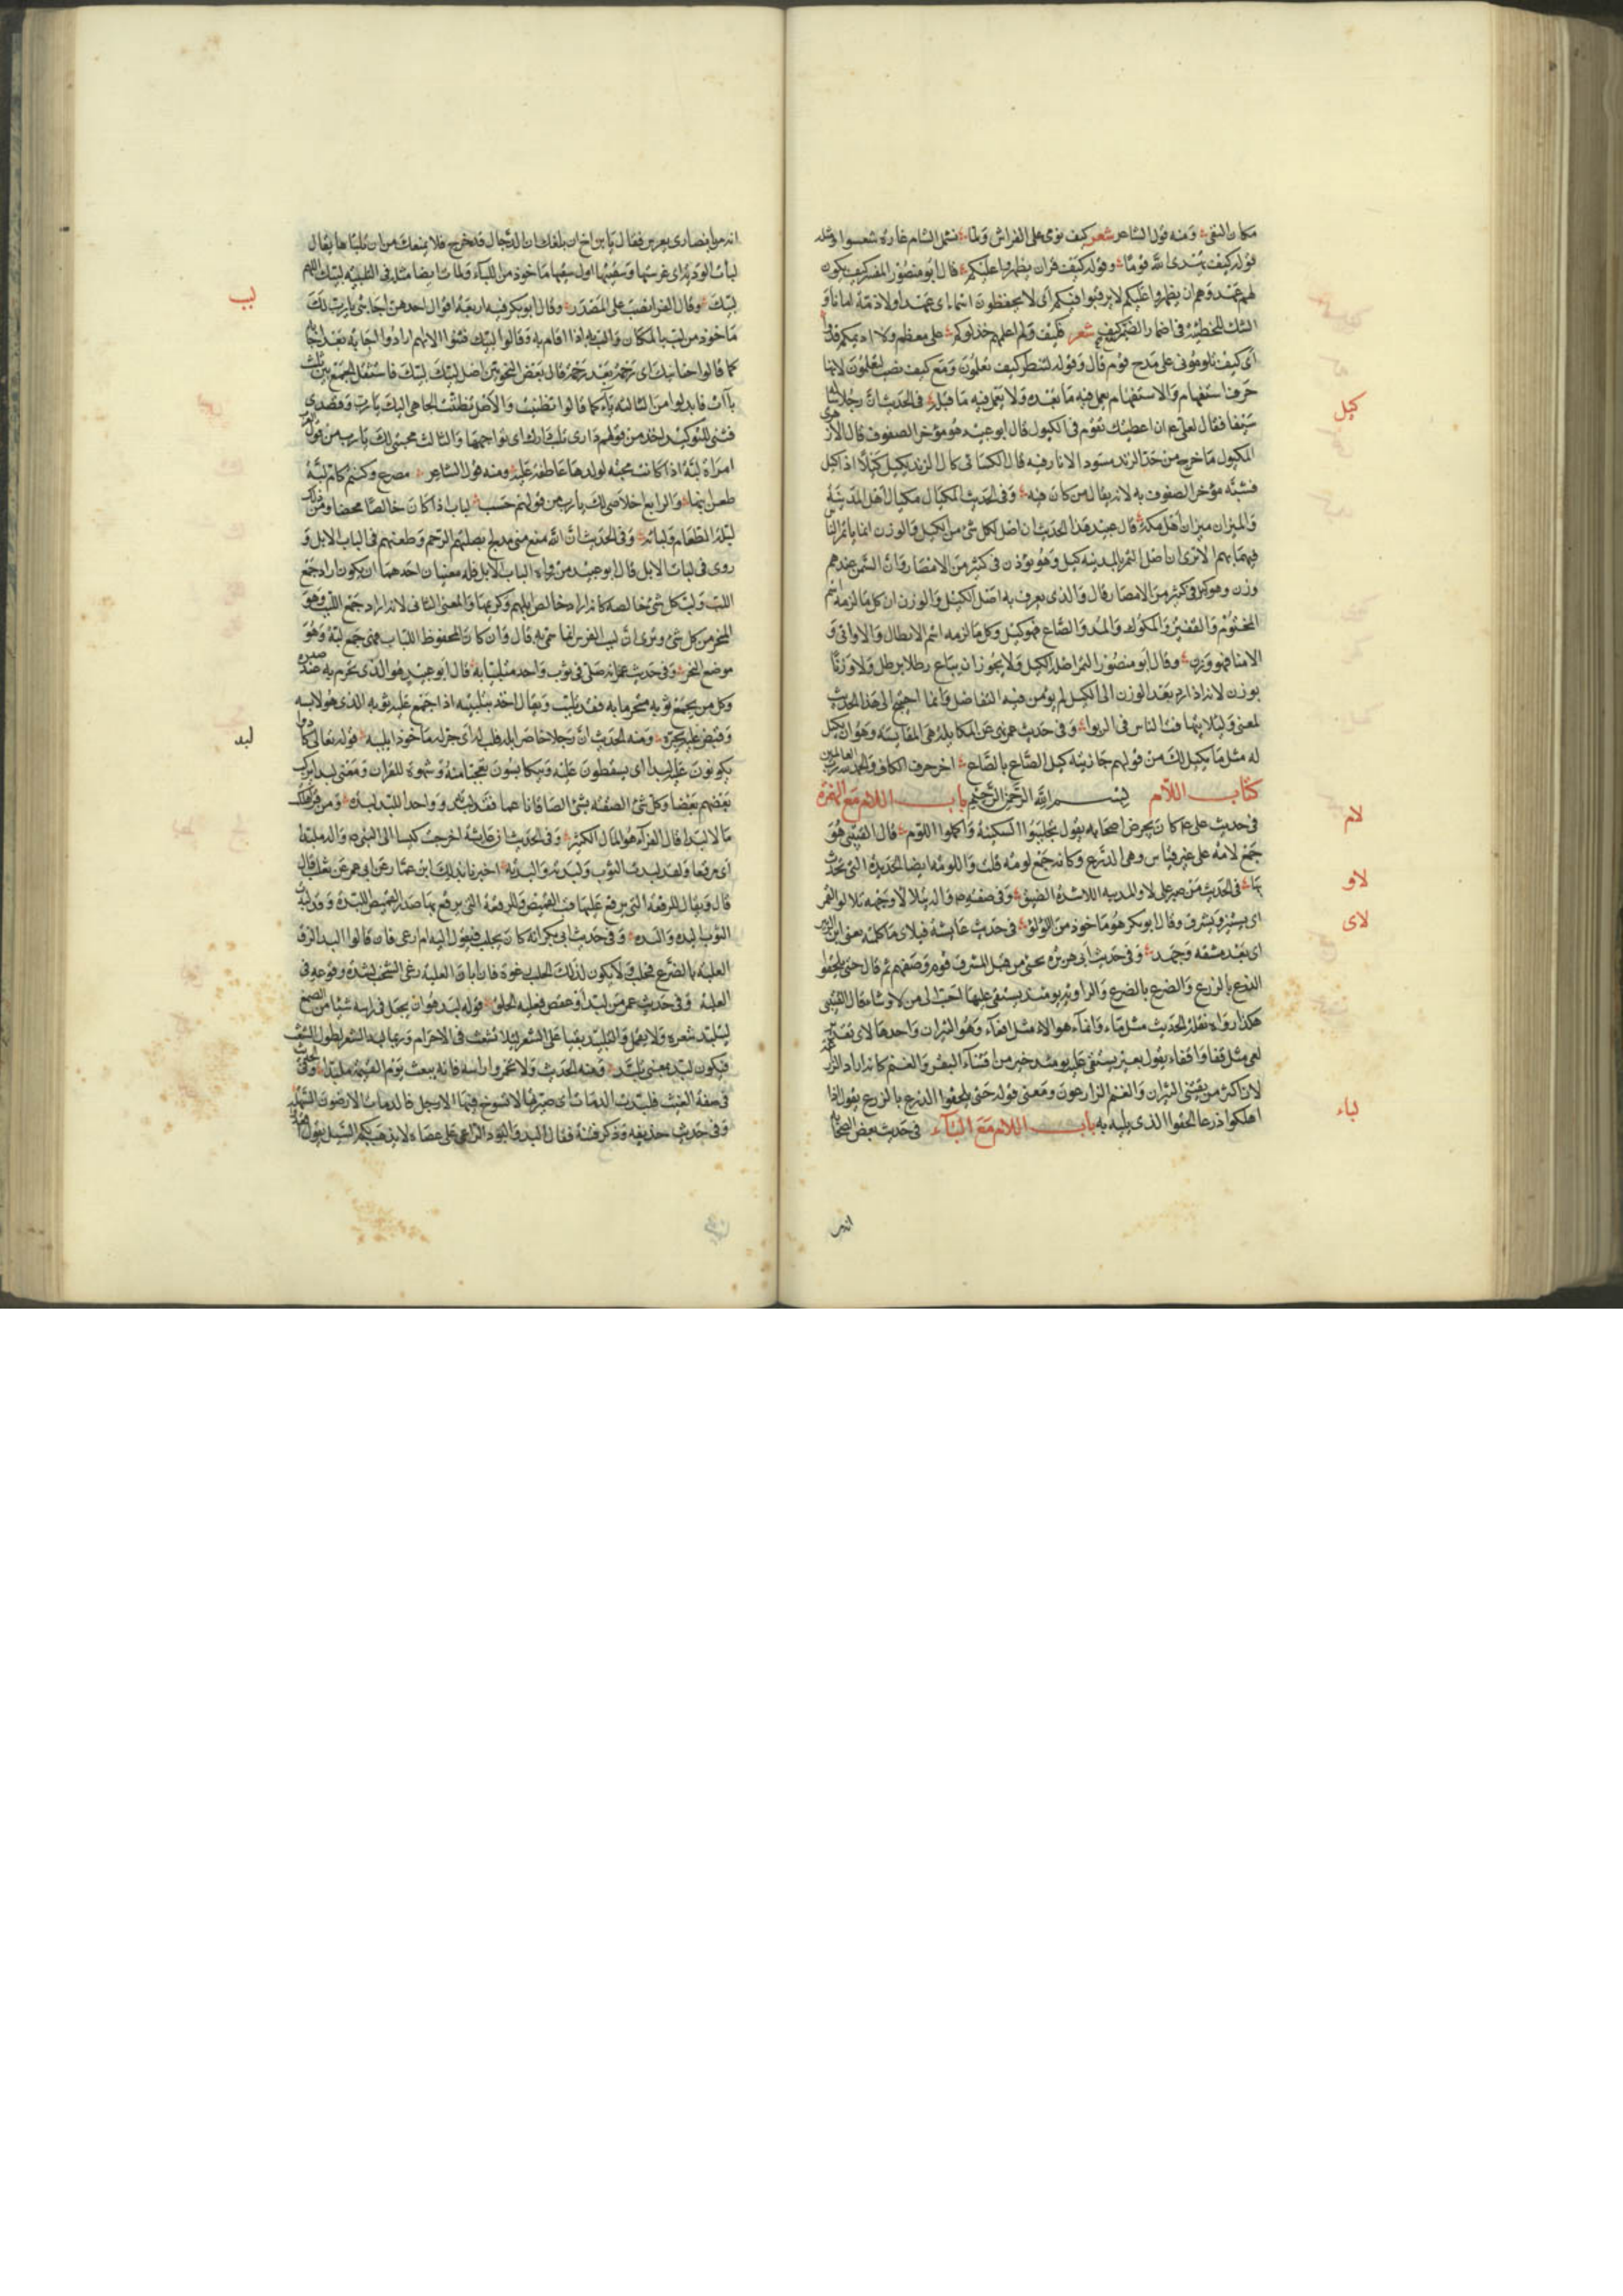 مكان النفى ومنه قول الشاعر شعر كيف نومى على الفراش ولما تشمل الشام غارة شعواء ومثله
قوله كيف يهدى الله قوما وقوله كيف وان يظهروا عليكم قال ابو منصور المفسر كيف يكون
لهم عهد وهم ان يظهروا عليكم لا يرقبوا فيكم اى لا يحفظون
للحطيئة فى اضمار الضمير كيف شعر فكيف ولم اعلمهم خذلوكم على معظم ولا اديمكم قدوا
اى كيف تلومونى على مدح قوم قال وقوله لننظر كيف تعملون ومع كيف نصب لتعملون لانها
حرف استفهام والاستفهام يعمل فيه ما بعده ولا يعمل فيه ما قبله فى الحديث ان رجلا
سيفا فقال لعلى ان اعطيتك تقوم فى الكيول قال ابو عبيد هو مؤخر الصفوف قال الازهرى
المكيول ما خرج من حر الزند مسودا لا نار فيه قال الكسائى كال الزند يكيل كيلا اذا كبا
فشبه مؤخر الصفوف به لانه يقال من كان فيه وفى الحديث المكيال مكيال اهل المدينة
والميزان ميزان اهل مكة قال عبيد هذا الحديث ان اصل لكل شئ من الكيل والوزن انما ياتم الناس
فيهما بهم الا ترى ان اصل التمر بالمدينة كيل وهو يوزن فى كثير من الامصار وان السمن عندهم
وزن وهو كيل فى كثير من الامصار قال والذى يعرف به اصل الكيل والوزن ان كل ما لزمه اسم
المختوم والقفيز والمكوك والمد والصاع فهو كيل وكل ما لزمه اسم الارطال والاواقى و
الامنا فهو وزن وقال ابو منصور التمر اصله الكيل ولا يجوز ان يباع رطلا برطل ولا وزنا
بوزن لانه اذا رد بعد الوزن الى الكيل لم يؤمن فيه التفاضل وانما احتيج الى هذا الحديث
لمعنى ولئلا يتهافت الناس فى الربوا وفى حديث عمر نهى عن المكايلة وهى المقايسة وهو ان يكيل
له مثل ما يكيل لك من قولهم جازيته كيل الصاع بالصاع اخر حرف الكاف والحمد لله رب العالمين
كتاب اللام بسم الله الرحمن الرحيم باب اللام مع الهمزة
فى حديث على كان يحرض اصحابه يقول تجلببوا السكينة واكملوا اللؤم قال القتيبى هو
جمع لأمة على غير قياس وهى الدرع وكانه جمع لؤمة قلت واللؤمة ايضا الحديدة التى يحرث
بها فى الحديث من صبر على لاواء المدينة اللاواء شدة الضيق وفى صفته يتلألأ وجهه تلألؤ القمر
اى يستنير ويشرق وقال ابو بكر هو ماخوذ من اللؤلؤ فى حديث عايشة فبلأى ما كلمته يعنى ابن الزبير
اى بعد مشقة وجهد وفى حديث ابى هريرة يجئ من قبل المشرق قوم وصفهم ثم قال حتى يلحقوا
الزرع بالزرع والضرع بالضرع والراوية يومئذ يستقى عليها احب الى من لاء وشاء قال القتيبى
هكذا رواه نقلة الحديث
لعى مثل قفا واقفاء يقول بعير يستقى عليه يومئذ خير من اقتناء البقر والغنم كانه اراد الزراعة
لان اكثر من يقتنى الثيران والغنم الزارعون ومعنى قوله حتى يلحقوا الزرع بالزرع يقول اذا
اهلكوا زرعا الحقوا الذى يليه به باب اللام مع الباء فى حديث بعض الصحابة
كيل
لام
لاو
لاى
لباء
انه مر بانصارى يغرس فقال يا ابن اخى ان بلغك ان الدجال قد خرج فلا يمنعك من ان تلبأها يقال
لبأت الودية اى غرستها وسقيتها اول سقيها ماخوذ من اللباء فى التلبية لبيك اللهم
لبيك وقال الفراء نصب على المصدر وقال ابو بكر فيه اربعة اقوال احدهن اجابتى يا رب لك
ماخوذ من لب بالمكان والب به اذا اقام به وقالوا لبيك فثنوا لانهم ارادوا اجابة بعد اجابة
كما قالوا حنانيك اى رحمة بعد رحمة قال بعض النحويين اصل لبيك لببك فاستثقل الجمع بين ثلث
باآت فابدلوا من الثالثة ياء كما قالوا تظنيت والاصل تظننت اتجاهى اليك يا رب وقصدى
فثنى للتوكيد اخذ من قولهم دارى تلب دارك اى تواجهها والثالث محبتى لك يا رب من قول العرب
امراة لبة اذا كانت محبة لولدها عاطفة عليه ومنه قول الشاعر مصرع وكنتم كام لبة
طعن ابنها والرابع اخلاصى لك يا رب من قولهم حسب لباب اذا كان خالصا محضا ومن ذلك
لب الطعام ولبابه وفى الحديث ان الله منع منى بنى مدلج بصلتهم الرحم وطعنهم فى الباب الابل و
روى فى لبات الابل قال ابو عبيد من رواه الباب الابل فله معنيان احدهما ان يكون اراد جمع
اللب ولب كل شئ خالصه كانه اراد خالص ابلهم وكريمها والمعنى الثانى انه اراد جمع اللبب وهو
المنحر من كل شئ ونرى ان لبب الفرس انما سمى به قال وان كان المحفوظ اللبات فهى جمع لبة وهو
موضع النحر وفى حديث عمر انه صلى فى ثوب واحد متلببا به قال ابو عبيد هو الذى تحزم به عند صدره
وكل من يجمع ثوبه متحزما به فقد تلبب ويقال اخذ بتلبيبه اذا جمع عليه ثوبه الذى هو لابسه
وقبض عليه يجره ومنه الحديث ان رجلا خاصم اباه فلب له اى جر له ماخوذا بلببه قوله تعالى كادوا
يكونون عليه لبدا اى يسقطون عليه ويتكابسون تعجبا منه وشهوة للقران ومعنى لبدا يركب
بعضهم بعضا وكل شئ الصقته بشئ الصاقا ناعما فقد لبدته وواحد اللبد لبدة ومن قوله اهلكت
مالا لبدا قال الفراء هو المال الكثير وفى الحديث ان عايشة اخرجت كساء النبى ملبدا
اى مرقعا ولقد لبدت الثوب ولبدته والبدته اخبرنا بذلك ابن عمار عن ابى عمر عن ثعلب قال
قال ويقال للرقعة التى يرقع بها صدر القميص اللبدة وقد لبدت
الثوب البده والبده وفى حديث ابى بكر انه كان يحلب فيقول
العلبة بالضرع فحلب ولا يكون لذلك الحلب رغوة فان ابان العلبة رغى الشخب لشدة وقوعه فى
العلبة وفى حديث عمر من لبد او عقص فعليه الحلق قوله لبد هو ان يجعل فى راسه شيئا من الصمغ
ليتلبد شعره ولا يقمل والتلبيد بقيا على الشعر لئلا يشعث فى الاحرام
فيكون لبد بمعنى تلبد ومنه الحديث ولا تخمروا راسه فانه يبعث يوم القيمة ملبدا وفى حديث
فى صفة الغيث فلبدت الدماث اى صيرتها لا تسوخ فيها الارجل والدماث الارضون السهلة
وفى حديث حذيفة وذكر فتنة فقال البدوا لبود الراعى على عصاه لا يذهب بكم السيل يقول
لبب
لبد